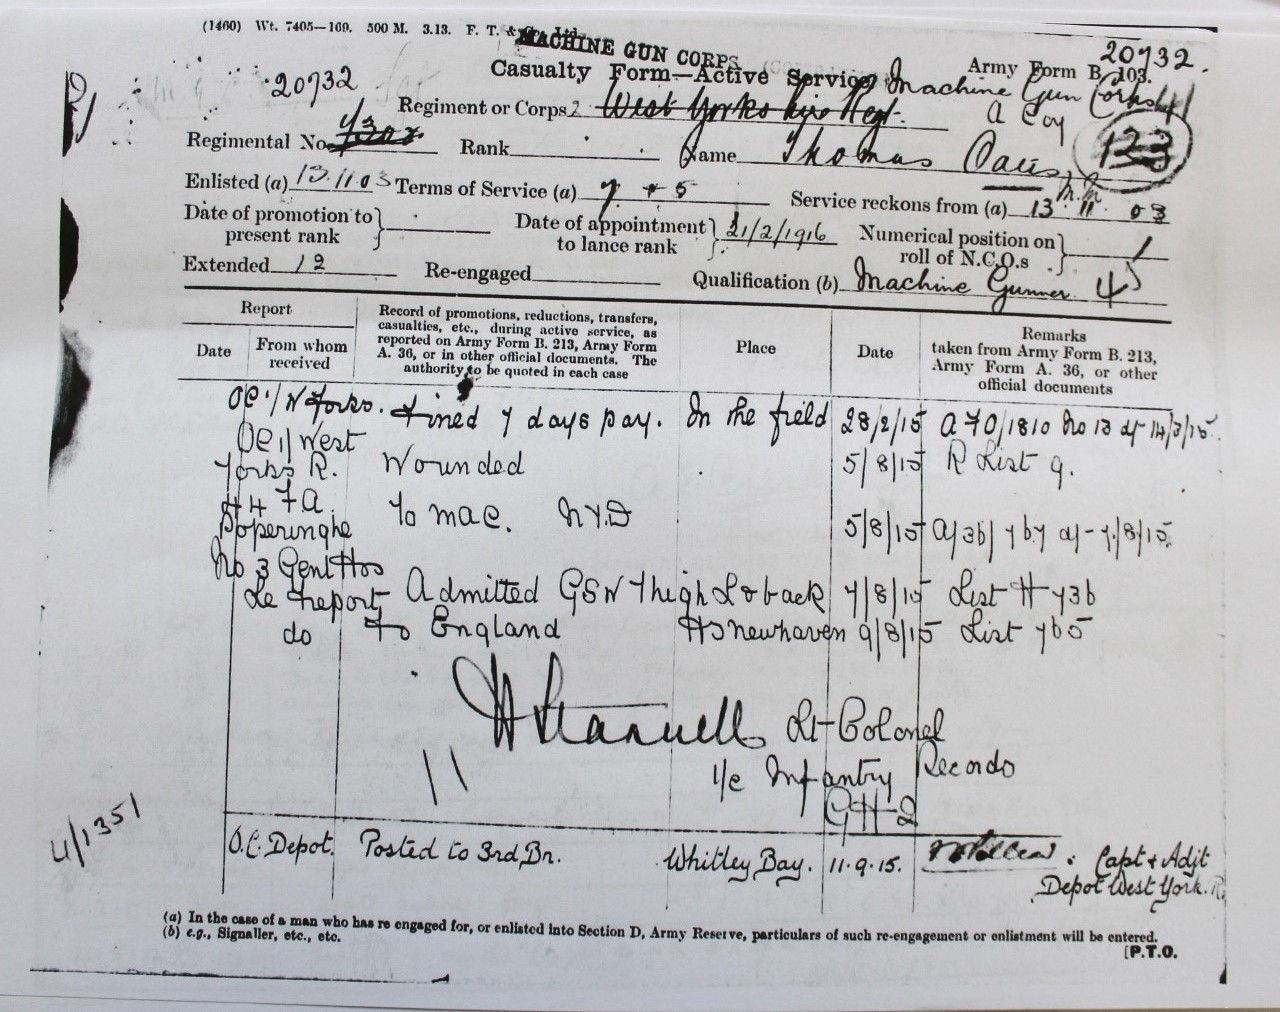 (1460) Wt. 7405—169. 500 M. 3.13. F. T. & Co., Ltd.
MACHINE GUN CORPS
20732.
20732
Casualty Form—Active Service.
Army Form B. 103.
Machine Gun Corps
Regiment or Corps 2 West Yorkshire Regt.
A Coy
133
Regimental No. Rank Name Thomas
M.M.
Enlisted (a) 13.11.03 Terms of Service (a) 7 + 5 Service reckons from (a) 13 11 03
Date of promotion to present rank } Date of appointment to lance rank } 21/2/1916 Numerical position on roll of N.C.Os }
Extended 12 Re-engaged Qualification (b) Machine Gunner
Report
Date
From whom received
Record of promotions, reductions, transfers, casualties, etc., during active service, as reported on Army Form B. 213, Army Form A. 36, or in other official documents. The authority to be quoted in each case
Place
Date
Remarks taken from Army Form B. 213, Army Form A. 36, or other official documents
OC 1/W Yorks. Fined 7 days pay. In the field 28/2/15 A70/1810 No 13 of 14/3/15.
OC 1/West Yorks R. Wounded 5/8/15 R List 9.
FA Poperinghe To MAC. NYD 5/8/15 A/36/
No 3 Genl Hos Le Treport Admitted GSW Thigh L & back 7/8/15 List H 736
do To England HS Newhaven 9/8/15 List 765
Lt-Colonel
I/c Infantry Records
GHQ
11
4/1351
O.C. Depot. Posted to 3rd Bn. Whitley Bay. 11.9.15. Capt & Adjt
Depot West York. R.
(a) In the case of a man who has re-engaged for, or enlisted into Section D, Army Reserve, particulars of such re-engagement or enlistment will be entered.
(b) e.g., Signaller, etc., etc.
[P.T.O.